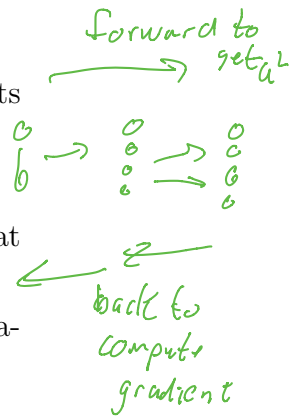 forward to
get a^L
ts
at
back to
a-
compute
gradient